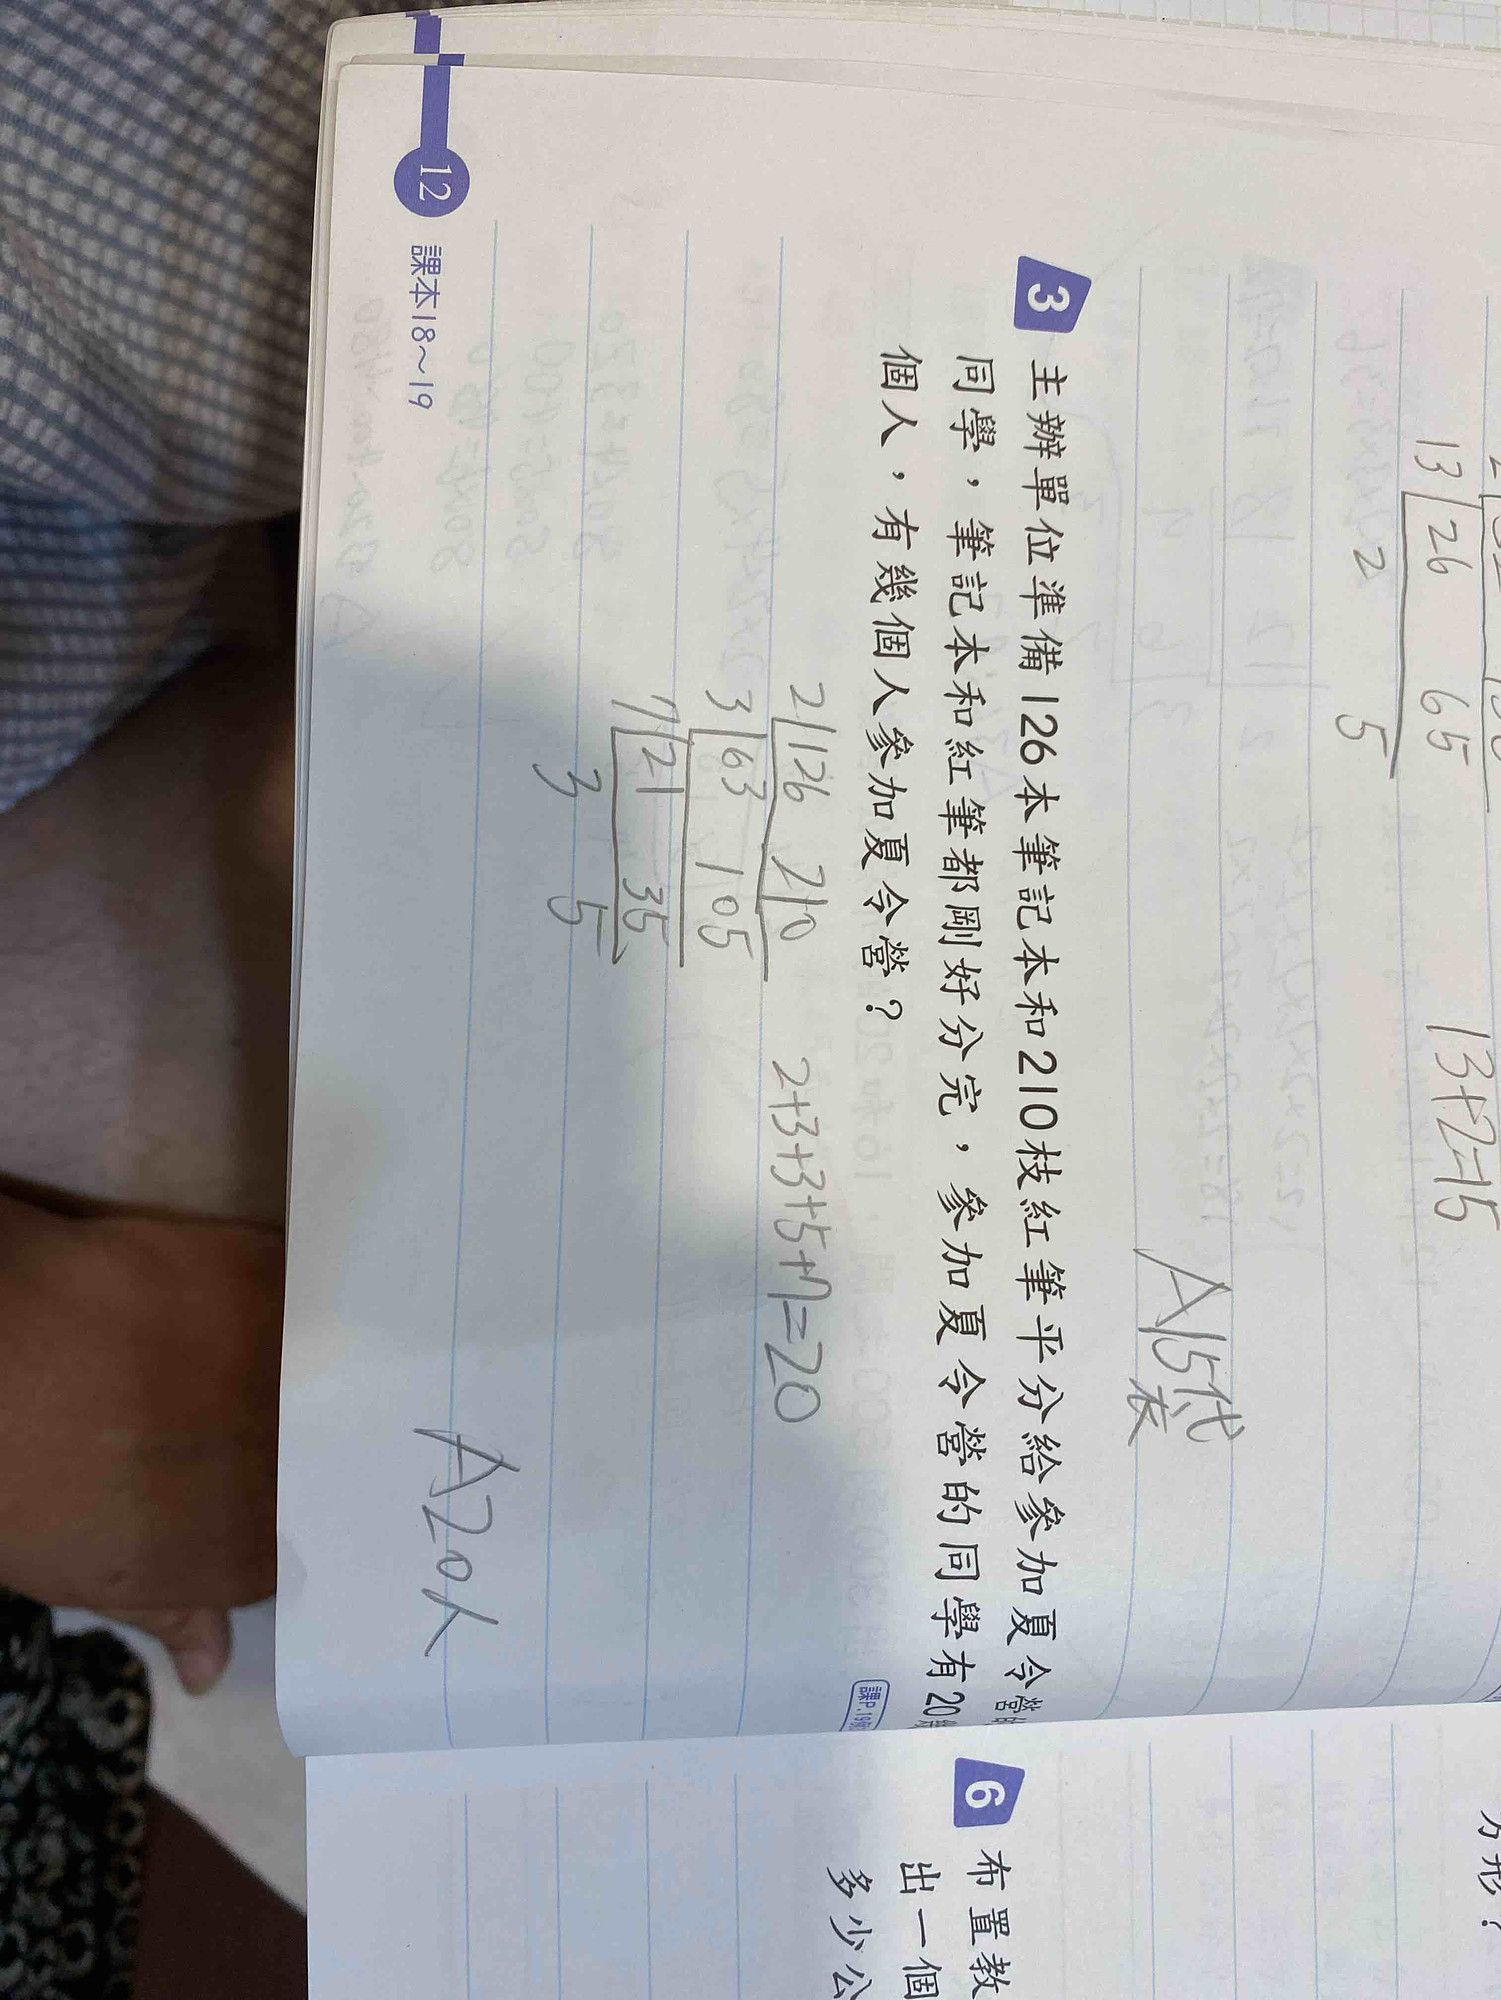 13 26 65
2 5
13+2=15
A 15代
表
3 主辦單位準備126本筆記本和210枝紅筆平分給參加夏令營的
同學，筆記本和紅筆都剛好分完，參加夏令營的同學有20幾
個人，有幾個人參加夏令營？
2 126 210
3 63 105
7 21 35
3 5
2+3+3+5+7=20
A 20人
12 課本18～19
6 布置教
出一個
多少公
方形？